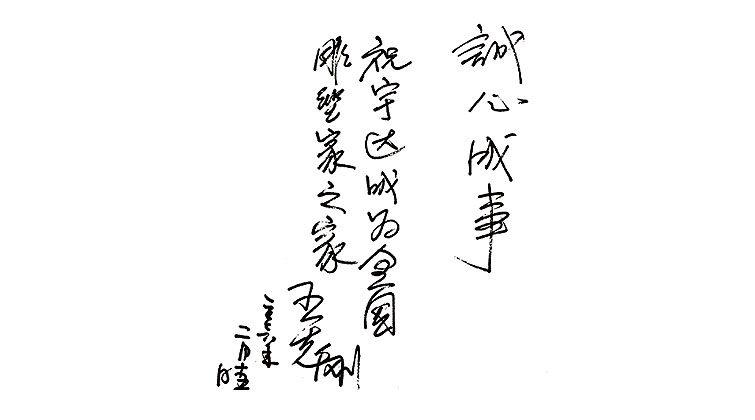 誠心成事
祝宇达成为全国
雕塑家之家
王克
二〇〇六年
二月